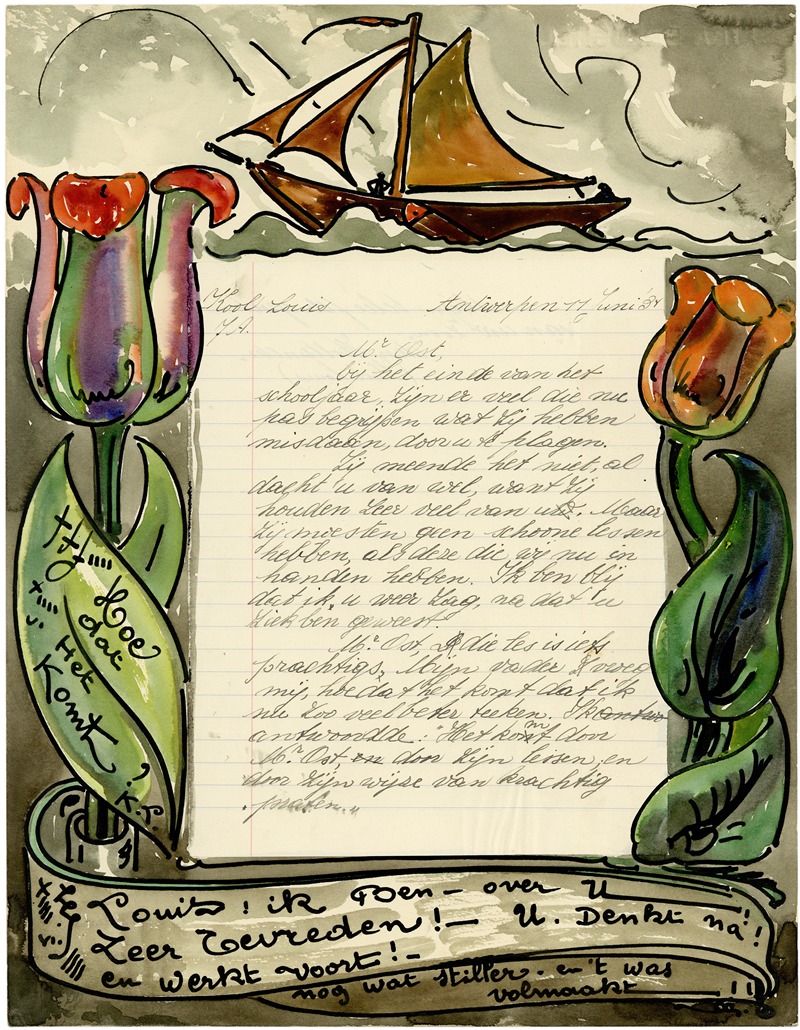 Kool Louis Antwerpen 17 Juni
Mr Ost,
bij het einde van het
schooljaar, zijn er veel die nu
pas begrijpen wat zij hebben
misdaan, door u te plagen.
Zij meende het niet, al
dacht u van wel, want zij
houden zeer veel van u. Maar
zij moesten geen schoone lessen
hebben, als deze die wij nu en
handen hebben. Ik ben blij
dat ik u weer zag, na dat u
ziek ben geweest.
Mr Ost, die les is iets
prachtigs. Mijn vader vroeg
mij, hoe dat het komt dat ik
nu zoo veel beter teeken. Ik
antwoordde: Het komt door
Mr Ost, en door zijn lessen, en
door zijn wijze van krachtig
praten."
Hoe
dat
Het
Komt
?
Louis! ik Ben – over U
Zeer Tevreden! – U. Denkt na!
en werkt voort! –
nog wat stiller. en 't was
volmaakt!!